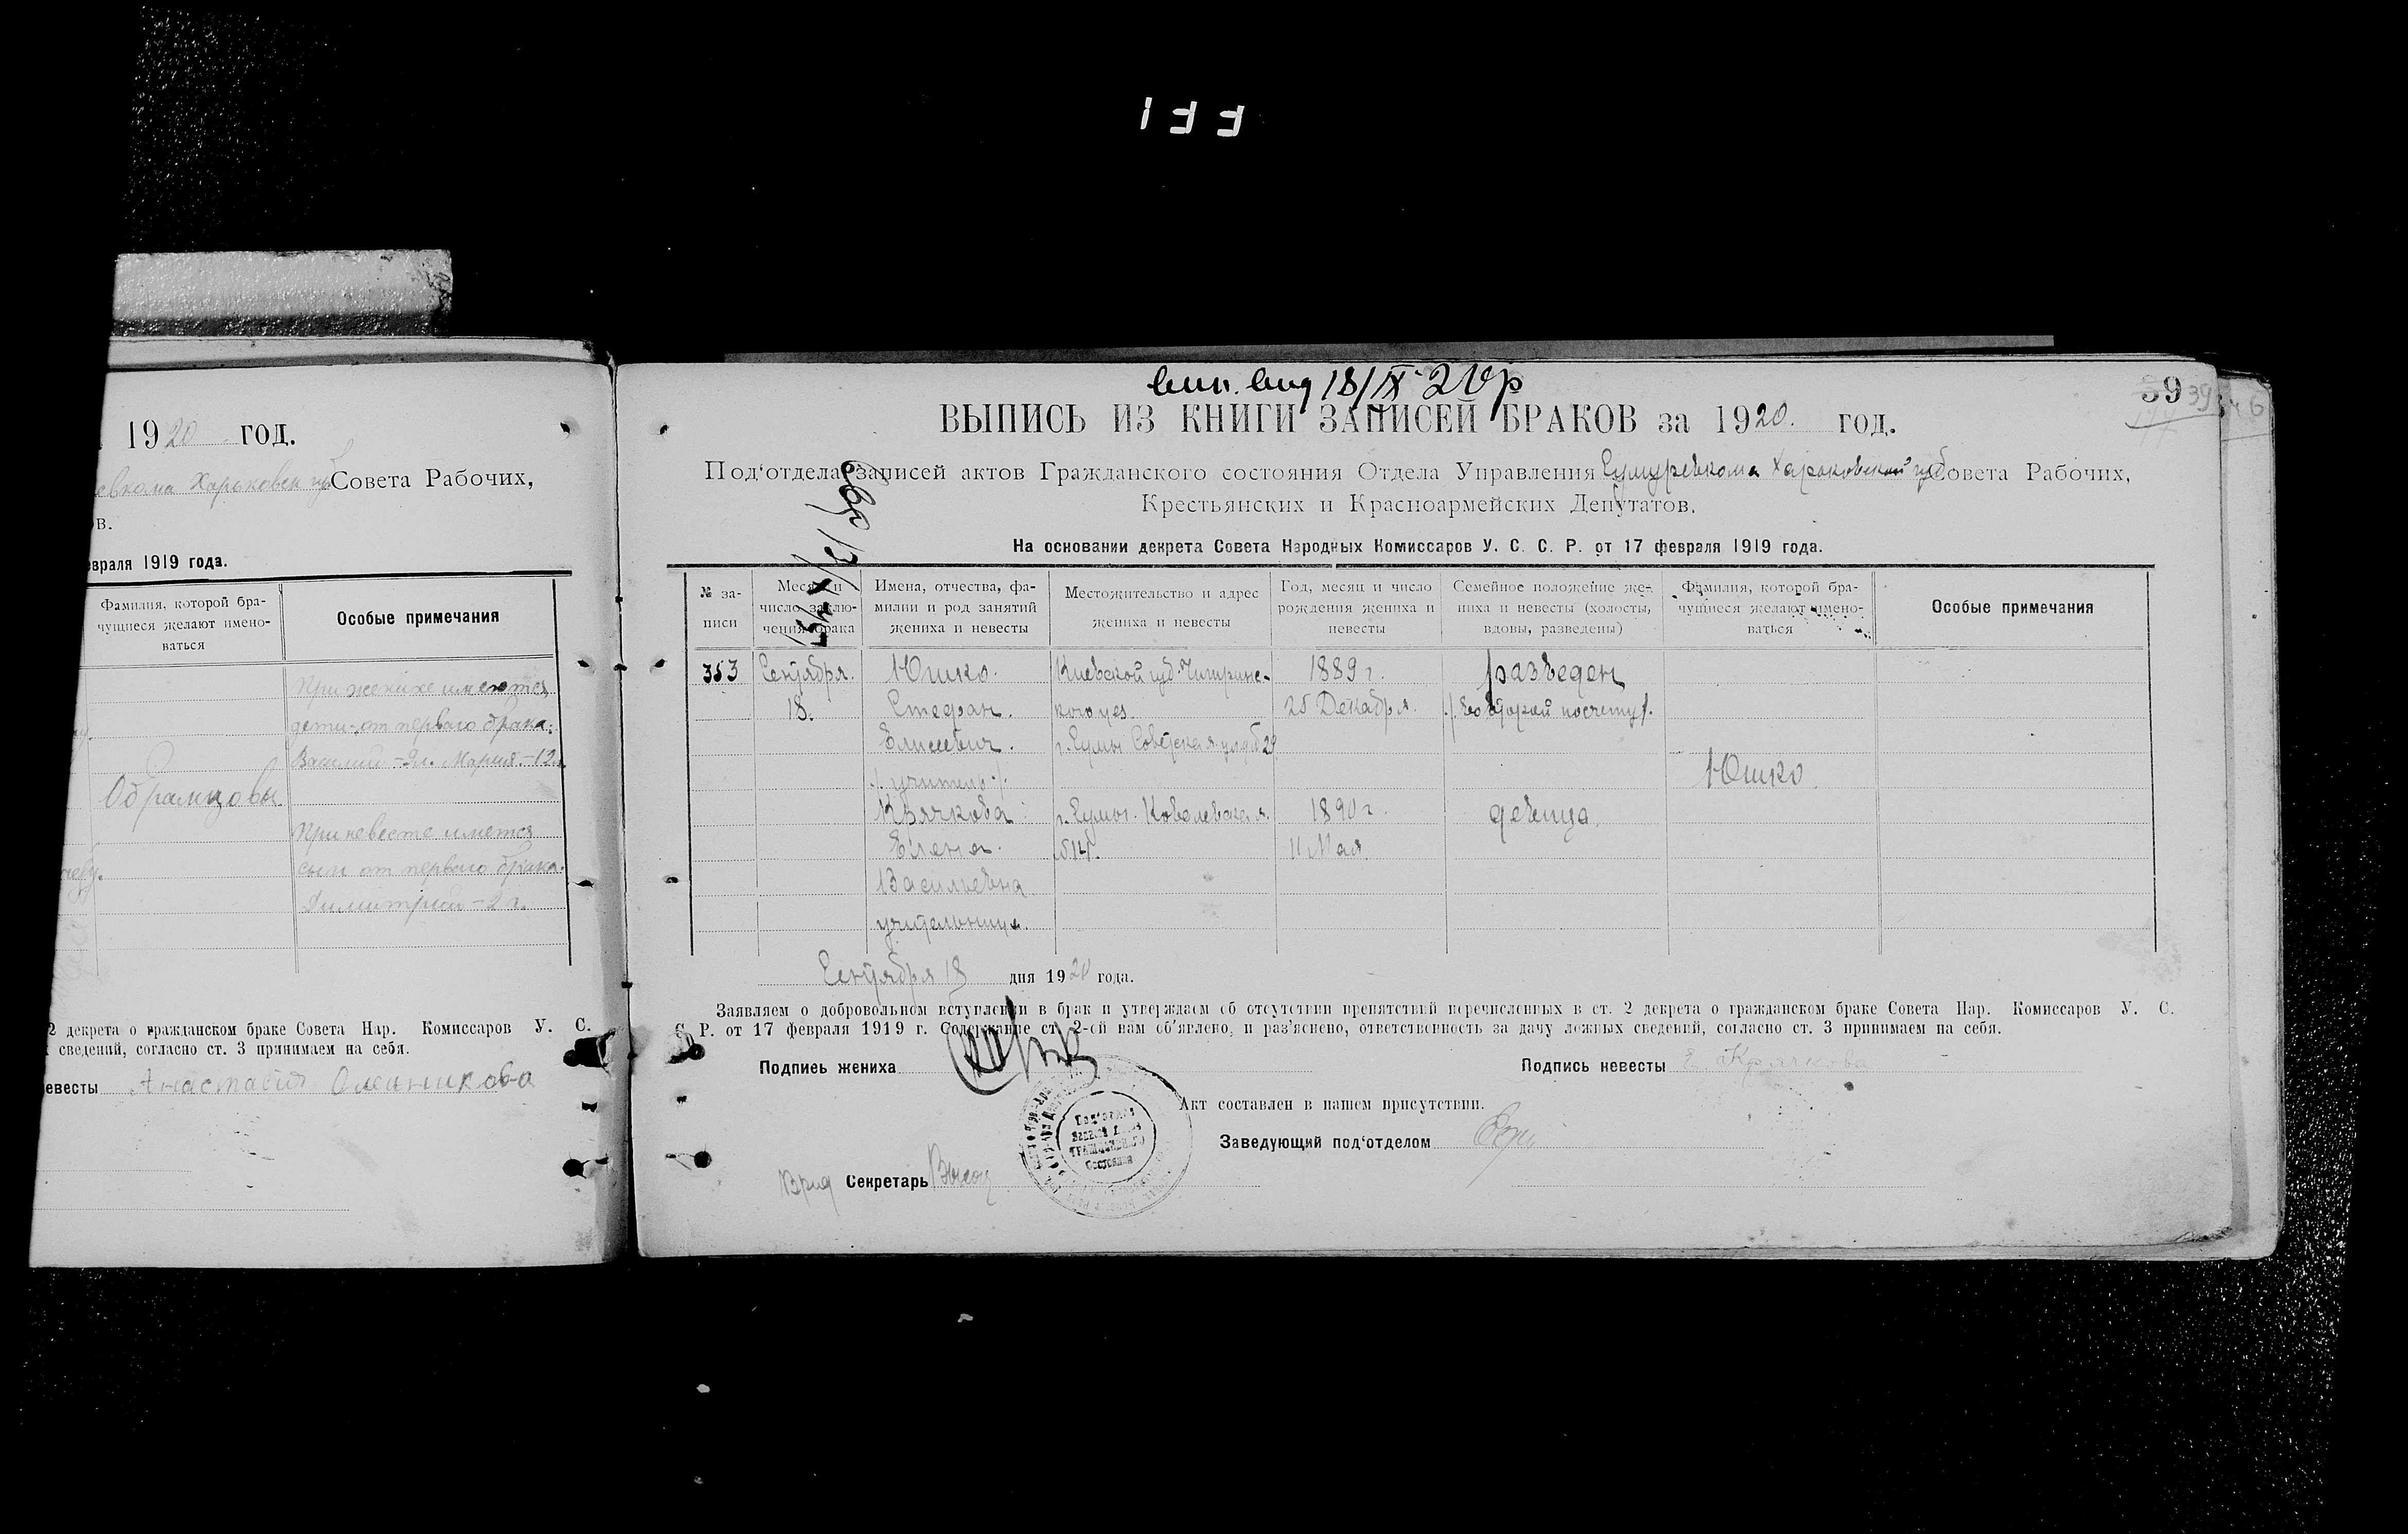 177
1920 год.
евкома Харьковск губ Совета Рабочих,
ов.
евраля 1919 года.
Фамилия, которой бра-
чущиеся желают имено-
ваться
Особые примечания
При женихе имеются
дети от первого брака:
Василий - 9 л. Мария - 12 л.
Обрамцовы
При невесте имется
сын от первого брака
Димитрий - 2 г.
2 декрета о гражданском браке Совета Нар. Комиссаров У. С.
сведений, согласно ст. 3 принимаем на себя.
евесты Анастасия Олейникова
18/IX 20 р
39 39
ВЫПИСЬ ИЗ КНИГИ ЗАПИСЕЙ БРАКОВ за 1920. год.
Под'отдела записей актов Гражданского состояния Отдела Управления Сумуревкома Харьковской губ Совета Рабочих,
Крестьянских и Красноармейских Депутатов.
На основании декрета Совета Народных Комиссаров У. С. С. Р. от 17 февраля 1919 года.
№ за-
писи
Месяц и
число заклю-
чения брака
Имена, отчества, фа-
милии и род занятий
жениха и невесты
Местожительство и адрес
жениха и невесты
Год, месяц и число
рождения жениха и
невесты
Семейное положение же-
ниха и невесты (холосты,
вдовы, разведены)
Фамилия, которой бра-
чущиеся желают имено-
ваться
Особые примечания
353 Сентября. Юшко. Киевской губ. Чигринс- 1889 г. разведен
18. Стефан. кого уез. 25 Декабря. /. второй по счету /.
Елисеевич. г. Сумы Советская ул. д. № 29
/. учитель ./. Юшко
Крячкова г. Сумы. Ковалевская. 1890 г. девица.
Елена. №14. 11 Мая.
Васильевна
учительница.
Сентября 18 дня 1920 года.
Заявляем о добровольном вступлении в брак и утверждаем об отсутствии препятствий перечисленных в ст. 2 декрета о гражданском браке Совета Нар. Комиссаров У. С.
С. Р. от 17 февраля 1919 г. Содержание ст. 2-ой нам об'явлено, и раз'яснено, ответственность за дачу ложных сведений, согласно ст. 3 принимаем на себя.
Подпись жениха
Подпись невесты Е. Крячкова
Акт составлен в нашем присутствии.
Заведующий под'отделом
Под'отдел
Записи Актов
Гражданского
Состояния
Врид Секретарь